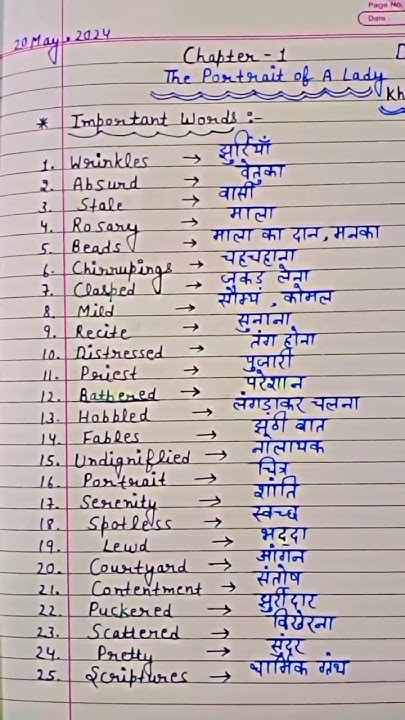 Page No.
Date :
20 May, 2024
Chapter - 1
The Portrait of A Lady
* Important Words :-
1. Wrinkles → झुर्रियाँ
2. Absurd → बेतुका
3. Stale → वासी
4. Rosary → माला
5. Beads → माला का दान, मनका
6. Chirrupings → चहचहाना
7. Clasped → जकड़ लेना
8. Mild → सौम्य, कोमल
9. Recite → सुनाना
10. Distressed → तंग होना
11. Priest → पुजारी
12. Bathered → परेशान
13. Hobbled → लंगड़ाकर चलना
14. Fables → झूठी बात
15. Undignified → नालायक
16. Portrait → चित्र
17. Serenity → शांति
18. Spotless → स्वच्छ
19. Lewd → भद्दा
20. Courtyard → आंगन
21. Contentment → संतोष
22. Puckered → झुर्रीदार
23. Scattered → विखेरना
24. Pretty → सुंदर
25. Scriptures → धार्मिक ग्रंथ